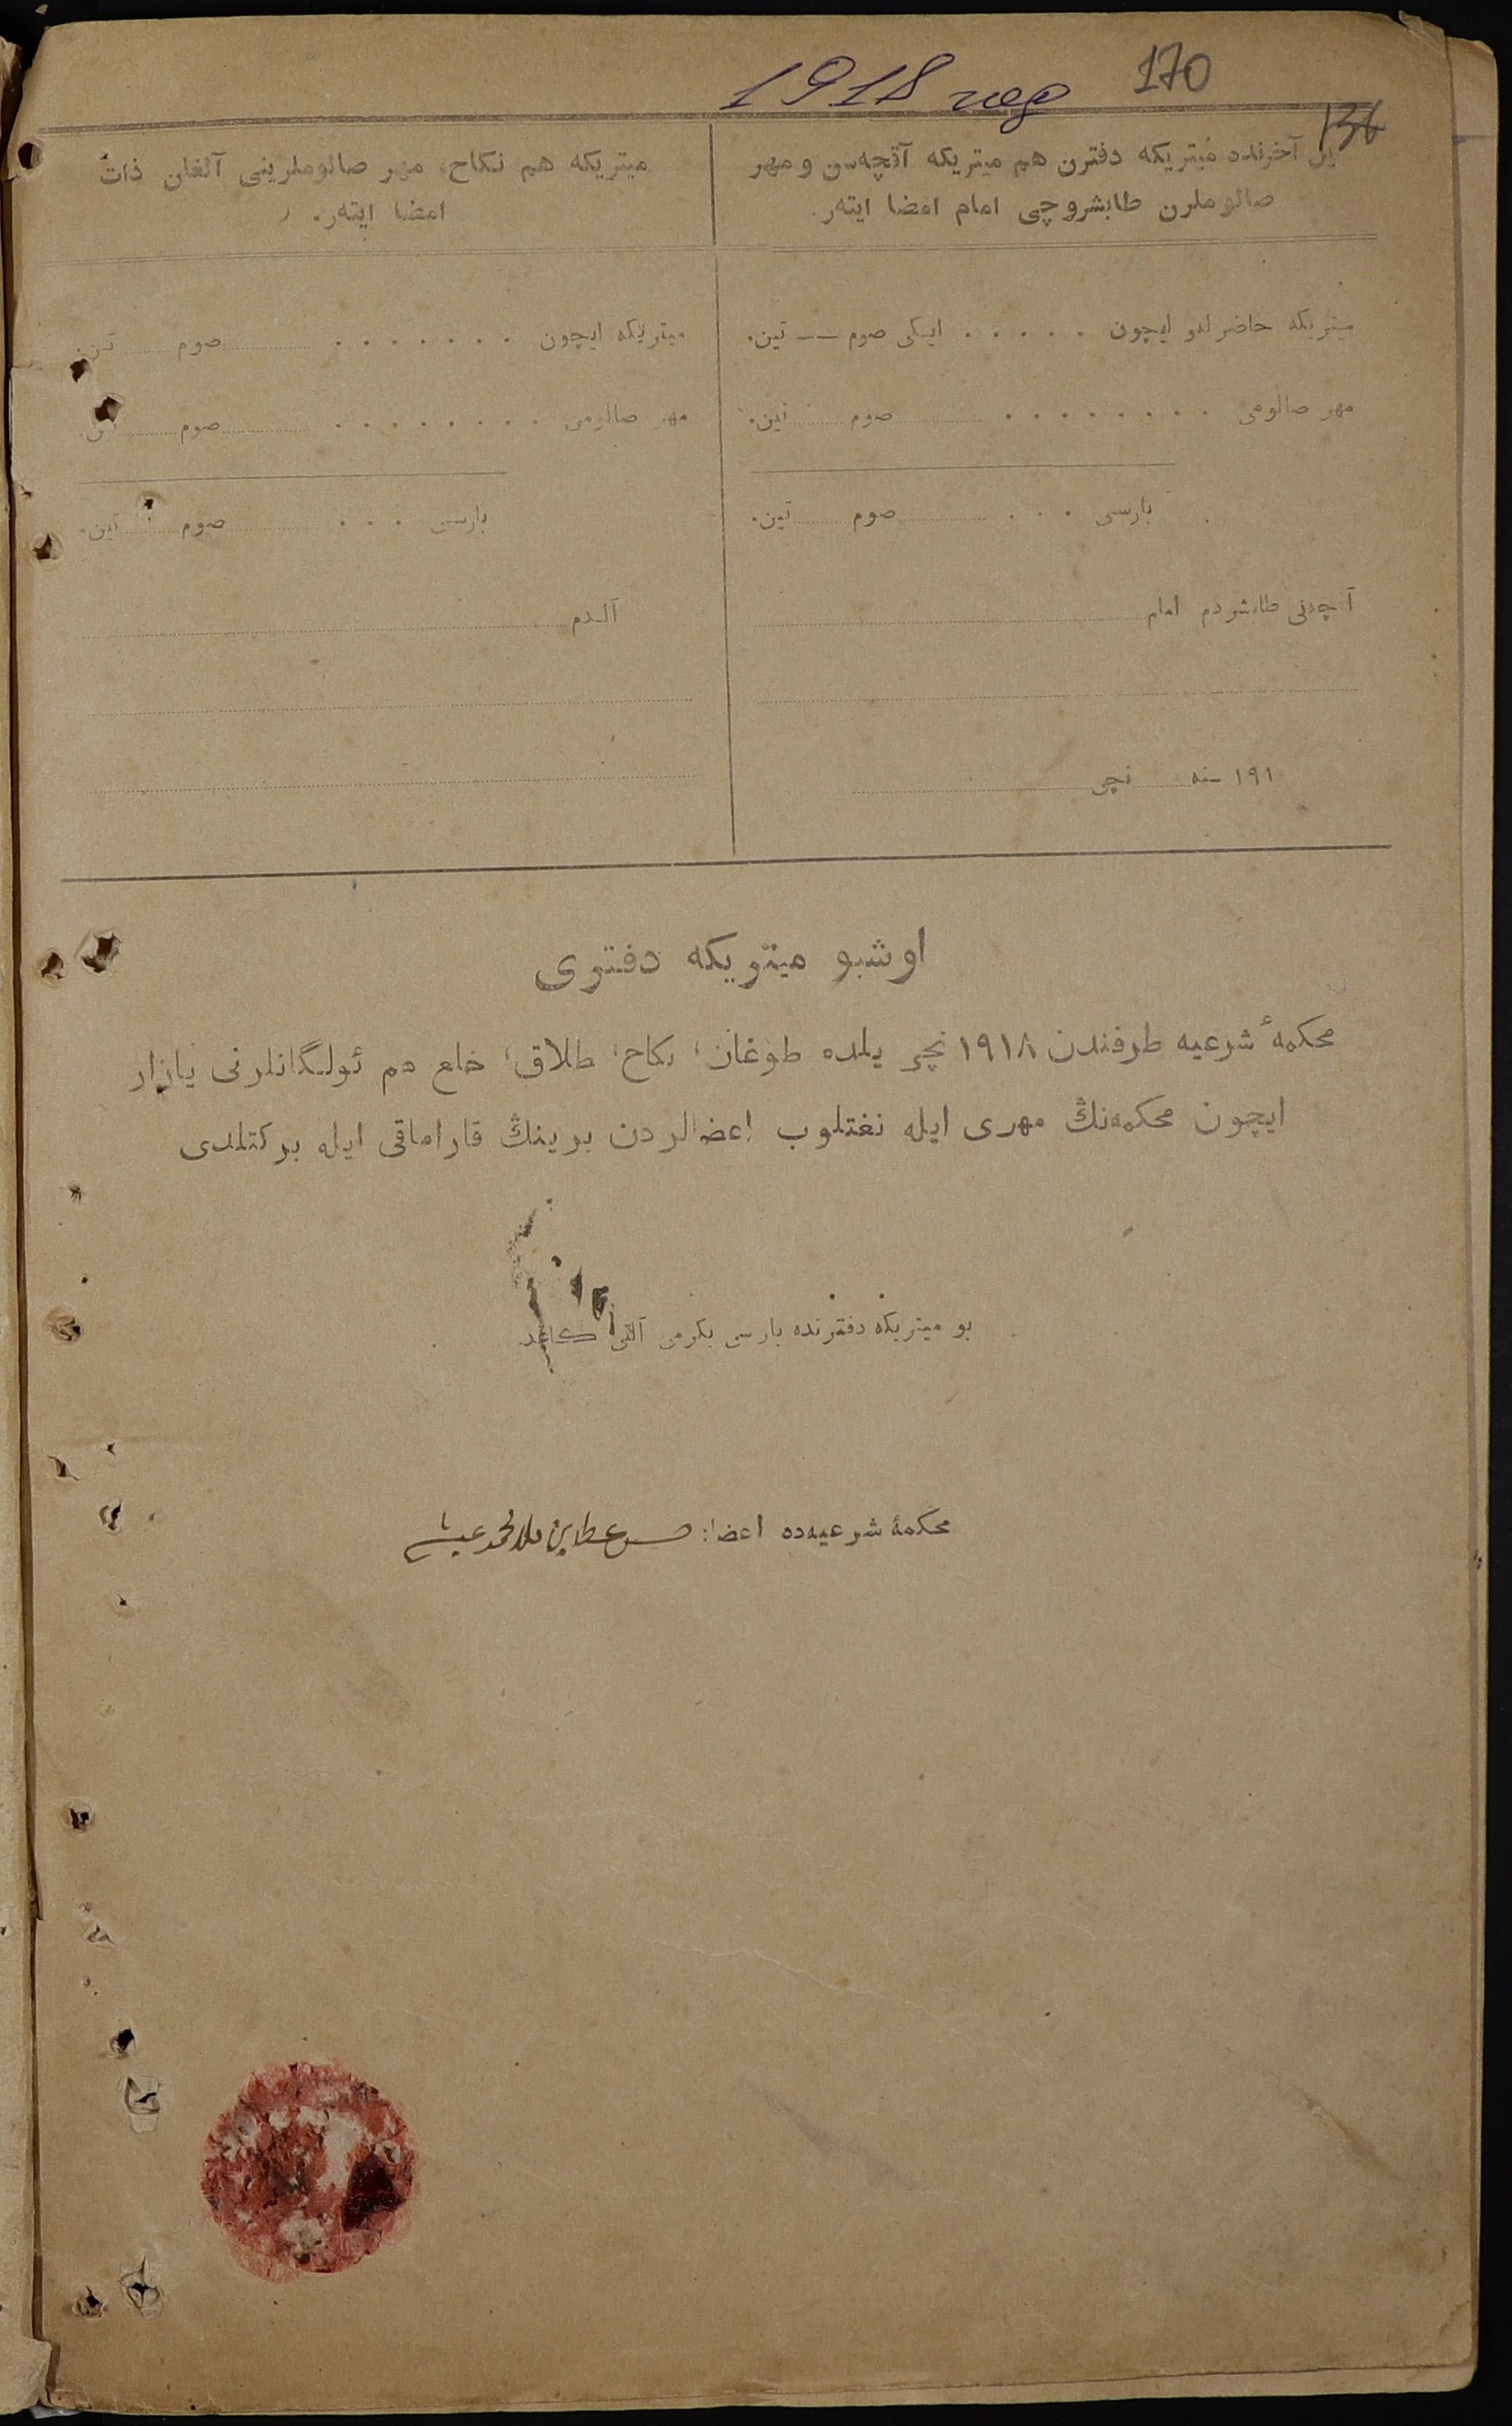 1918 год
170
136
یل آخرنده میتریکه دفترن هم میتریکه آقچه‌سن و مهر
صالوملرن طابشروچی امام امضا ایته‌ر.
میتریکه حاضرله‌و ایچون . . . . . ایکی صوم –– تین.
مهر صالومی . . . . . . . . صوم تین.
بارسی . . . صوم تین.
آچه‌نی طابشردم امام
۱۹۱ سنه نچی
میتریکه هم نکاح، مهر صالوملرینی آلغان ذات
امضا ایته‌ر.
میتریکه ایچون . . . . . . . صوم تین.
مهر صالومی . . . . . . . . صوم تین.
بارسی . . . صوم تین.
آلدم
اوشبو میتریکه دفتری
محکمهٔ شرعیه طرفندن ۱۹۱۸ نچی یلده طوغان، نکاح، طلاق، خلع هم ئولگانلرنی یازار
ایچون محکمه‌نڭ مهری ایله نغتلوب اعضالردن برینڭ قاراماقی ایله برکتلدی
بو میتریکه دفترنده بارسی یکرمی آلتی کاغد
محکمهٔ شرعیه‌ده اعضا: